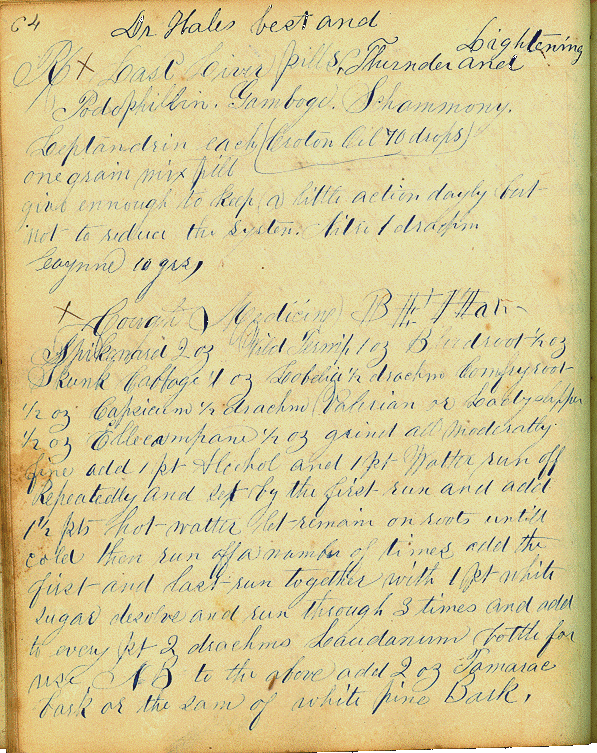 64
Dr Hales best and
Rx x Last Liver pills, Thunder and Lightening
Podophillin. Gamboge. Schammony.
Leptandrin each (Croton Oil 70 drops)
one grain mix pill
give ennough to keep a little action dayly but
not to reduce the system. Nitre 1 drachm
Caynne 10 grs,
x Cough Medicine B
Spikenard 2 oz Wild Turnip 1 oz Bloodroot ½ oz
Skunk Cabbage 1 oz Lobelia ½ drachm Comfry root
½ oz Capsicum ½ drachm Valerian or Ladyslipper
½ oz Ellecampane ½ oz grind all moderatly
fine add 1 pt Alcohol and 1 pt Watter run off
Repeatedly and set by the first run and add
1½ pts hot watter let remain on roots until
cold then run off a number of times add the
first and last run together with 1 pt white
sugar desolve and run through 3 times and add
to every pt 2 drachms Laudanum bottle for
use NB to the above add 2 oz Tamarac
bark or the sam of white pine Bark.